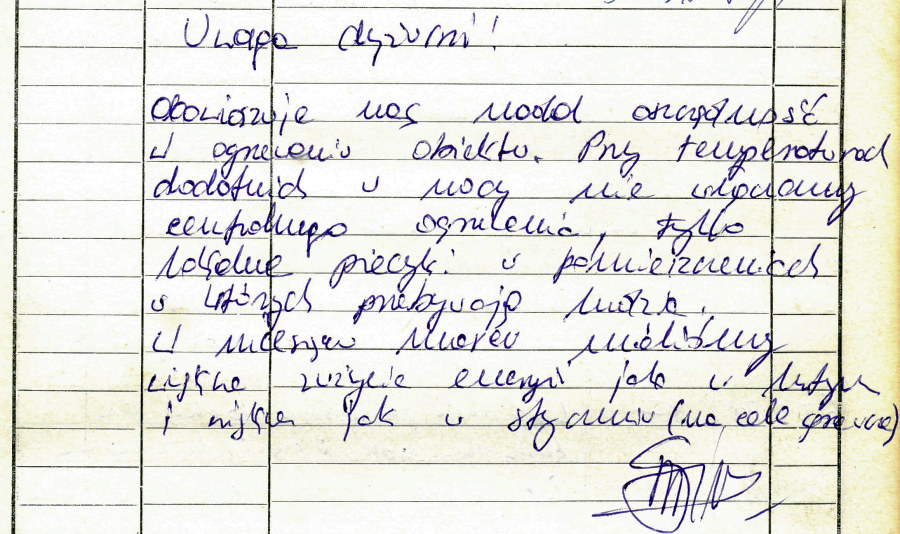 Uwaga dyżurni!
Obowiązuje nas nadal oszczędność
w ogrzewaniu obiektu. Przy temperaturach
dodatnich w nocy nie włączamy
centralnego ogrzewania, tylko
lokalne piecyki w pomieszczeniach
w których przebywają ludzie.
W miesiącu marcu mieliśmy
większe zużycie energii jak w lutym
i większe jak w styczniu (na cele grzewcze)